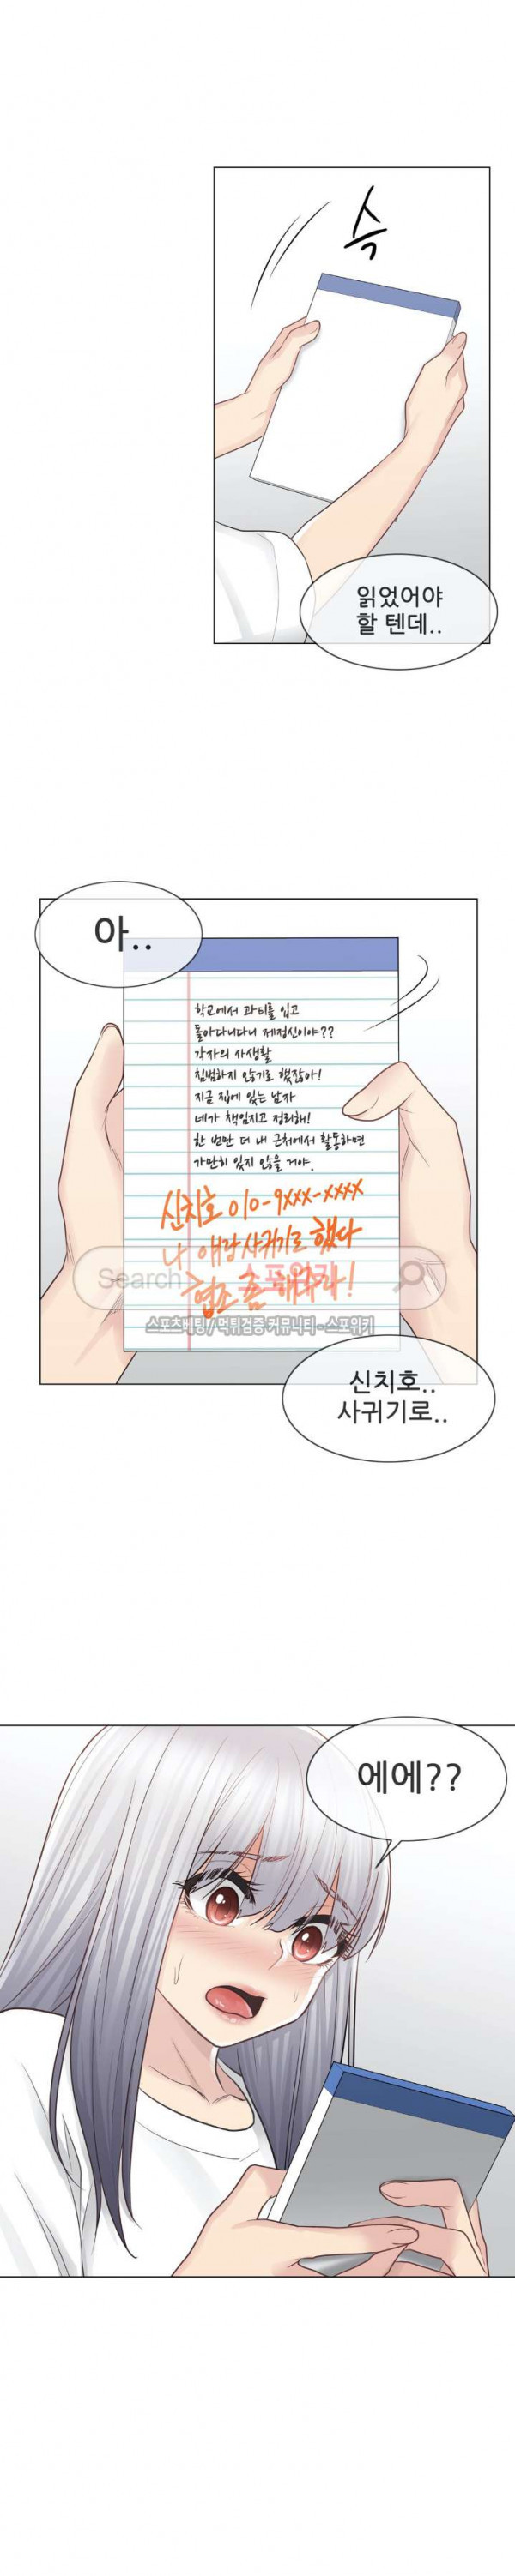 슥
읽었어야
할 텐데..
아..
학교에서 과티를 입고
돌아다니다니 제정신이야??
각자의 사생활
침범하지 않기로 했잖아!
지금 집에 있는 남자
네가 책임지고 정리해!
한 번만 더 내 근처에서 활동하면
가만히 있지 않을 거야.
신치호 010-9XXX-XXXX
나 얘랑 사귀기로 했다
협조 좀 해주라!
Search 스포위키
스포츠배팅 / 먹튀검증 커뮤니티 - 스포위키
신치호..
사귀기로..
에에??